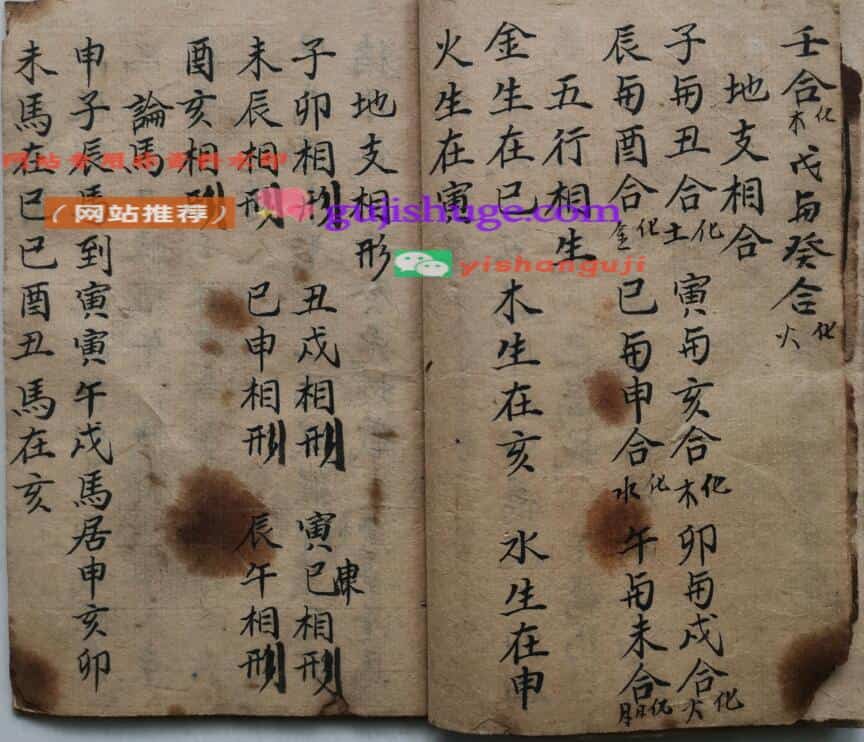 壬合化木 戊与癸合化火
地支相合
子与丑合化土 寅与亥合化木 卯与戌合化火
辰与酉合化金 巳与申合化水 午与未合化日月
五行相生
金生在巳 木生在亥 水生在申
火生在寅
地支相形
子卯相刑 丑戌相刑 寅巳相刑
未辰相刑 巳申相刑 辰午相刑
酉亥相刑
論馬
申子辰馬到寅寅午戌馬居申亥卯
未馬在巳巳酉丑馬在亥
(网站推荐)
gujishuge.com
yishanguji